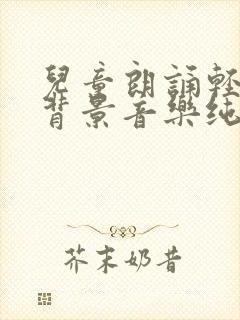 兒童朗誦輕
背景音樂純
芥末奶昔